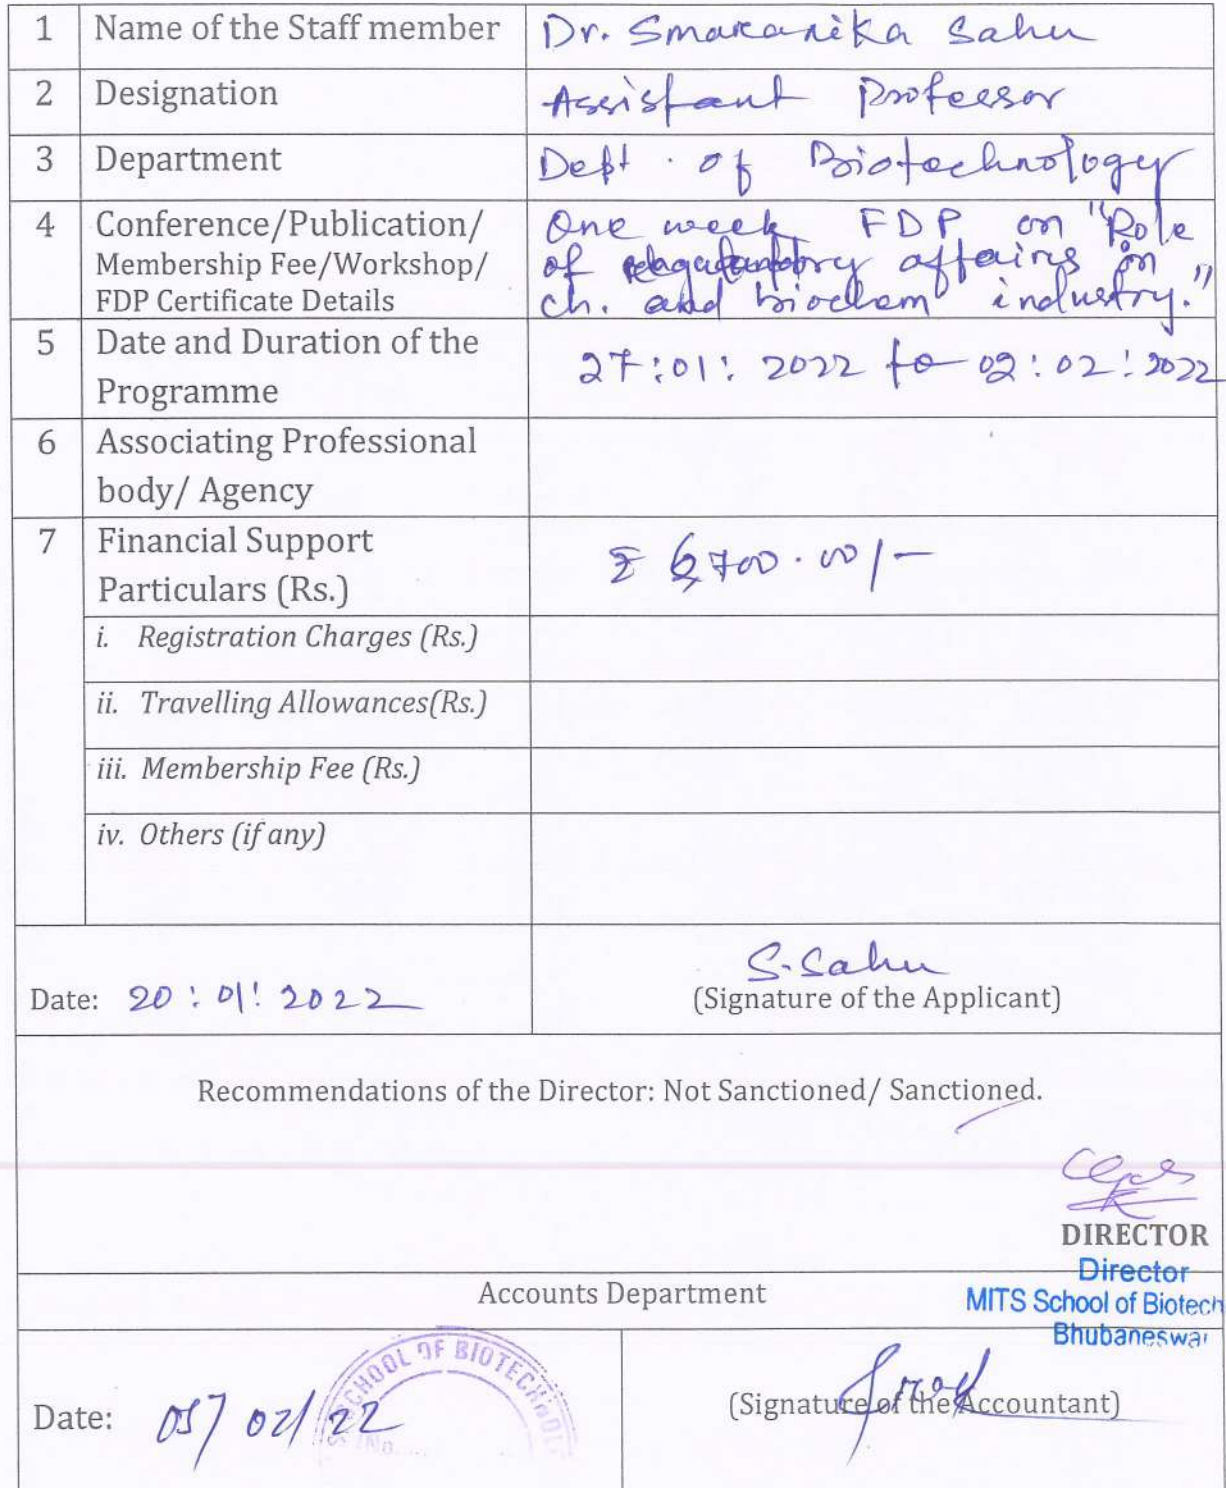 1 Name of the Staff member Dr. Smaranika Sahu
2 Designation Assistant Professor
3 Department Dept. of Biotechnology
4 Conference/Publication/ One week FDP on "Role
Membership Fee/Workshop/ of regulatory affairs in
FDP Certificate Details ch. and biochem industry."
5 Date and Duration of the
Programme 27:01:2022 to 02:02:2022
6 Associating Professional
body/ Agency
7 Financial Support
Particulars (Rs.) ₹ 6,700.00/-
i. Registration Charges (Rs.)
ii. Travelling Allowances(Rs.)
iii. Membership Fee (Rs.)
iv. Others (if any)
S. Sahu
Date: 20:01:2022 (Signature of the Applicant)
Recommendations of the Director: Not Sanctioned/ Sanctioned.
DIRECTOR
Director
Accounts Department MITS School of Biotech
Bhubaneswar
SCHOOL OF BIOTECHNOL
Date: 05/02/22 (Signature of the Accountant)
No.